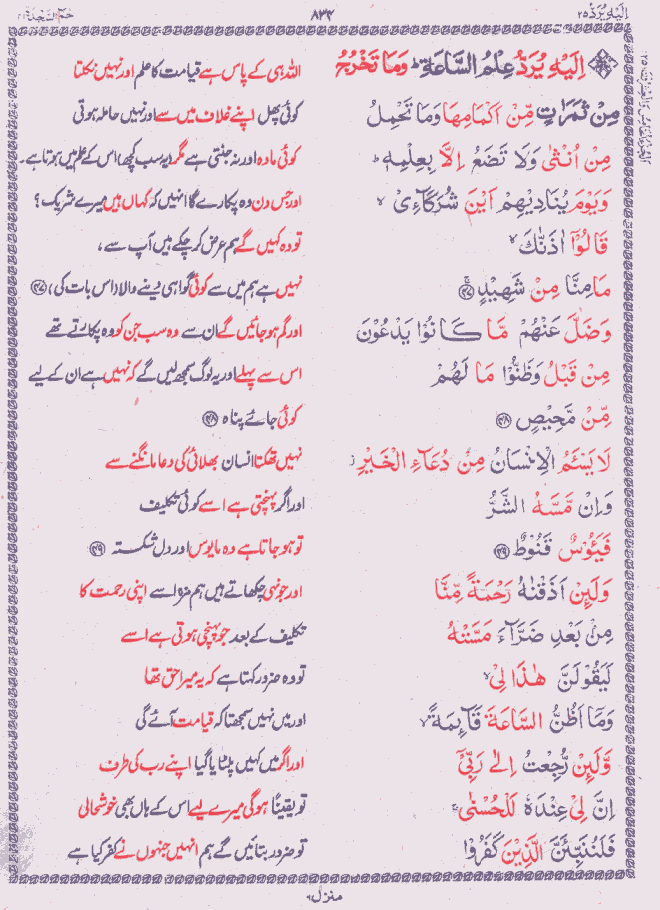 اِلَیْہِ یُرَدُّ ۲۵
۸۳۲
حٰمٓ السَّجْدَۃ ۴۱
اِلَیْهِ یُرَدُّ عِلْمُ السَّاعَةِ ؕ وَمَا تَخْرُجُ
اللہ ہی کے پاس ہے قیامت کا علم اور نہیں نکلتا
مِنْ ثَمَرٰتٍ مِّنْ اَكْمَامِهَا وَمَا تَحْمِلُ
کوئی پھل اپنے غلاف میں سے اور نہیں حاملہ ہوتی
مِنْ اُنْثٰی وَلَا تَضَعُ اِلَّا بِعِلْمِهٖ ؕ
کوئی مادہ اور نہ جنتی ہے مگر (یہ سب کچھ) اس کے علم میں ہوتا ہے۔
وَیَوْمَ یُنَادِیْهِمْ اَیْنَ شُرَكَآءِیْ ۙ
اور جس دن وہ پکارے گا انہیں کہ کہاں ہیں میرے شریک؟
قَالُوْۤا اٰذَنّٰكَ ۙ
تو وہ کہیں گے ہم عرض کر چکے ہیں آپ سے،
مَا مِنَّا مِنْ شَهِیْدٍ ۚ ﴿۴۷﴾
نہیں ہے ہم میں سے کوئی گواہی دینے والا (اس بات کی)، ﴿۴۷﴾
وَضَلَّ عَنْهُمْ مَّا كَانُوْا یَدْعُوْنَ
اور گم ہو جائیں گے ان سے وہ سب جن کو وہ پکارتے تھے
مِنْ قَبْلُ وَظَنُّوْا مَا لَهُمْ
اس سے پہلے اور یہ لوگ سمجھ لیں گے کہ نہیں ہے ان کے لیے
مِّنْ مَّحِیْصٍ ﴿۴۸﴾
کوئی جائے پناہ ﴿۴۸﴾
لَا یَسْـَٔمُ الْاِنْسَانُ مِنْ دُعَآءِ الْخَیْرِ ؗ
نہیں تھکتا انسان بھلائی کی دعا مانگنے سے
وَاِنْ مَّسَّهُ الشَّرُّ
اور اگر پہنچتی ہے اسے کوئی تکلیف
فَیَـُٔوْسٌ قَنُوْطٌ ﴿۴۹﴾
تو ہو جاتا ہے وہ مایوس اور دل شکستہ ﴿۴۹﴾
وَلَىِٕنْ اَذَقْنٰهُ رَحْمَةً مِّنَّا
اور جونہی چکھاتے ہیں ہم مزہ اسے اپنی رحمت کا
مِنْۢ بَعْدِ ضَرَّآءَ مَسَّتْهُ
تکلیف کے بعد جو پہنچی ہوتی ہے اسے
لَیَقُوْلَنَّ هٰذَا لِیْ ۙ
تو وہ ضرور کہتا ہے کہ یہ میرا حق تھا
وَمَاۤ اَظُنُّ السَّاعَةَ قَآىِٕمَةً ۙ
اور میں نہیں سمجھتا کہ قیامت آئے گی
وَّلَىِٕنْ رُّجِعْتُ اِلٰی رَبِّیْۤ
اور اگر میں کہیں پلٹایا گیا اپنے رب کی طرف
اِنَّ لِیْ عِنْدَهٗ لَلْحُسْنٰی ۚ
تو یقیناً ہوگی میرے لیے اس کے ہاں بھی خوشحالی
فَلَنُنَبِّئَنَّ الَّذِیْنَ كَفَرُوْا
تو ضرور بتائیں گے ہم انہیں جنہوں نے کفر کیا ہے
منزل ۶